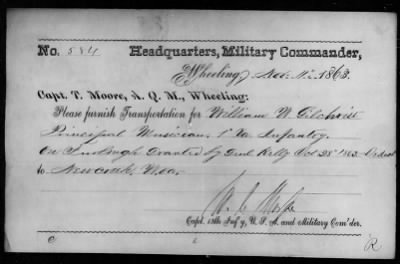 No. 584 Headquarters, Military Commander,
Wheeling, Nov. 1863.
Capt. T. Moore, A. Q. M., Wheeling:
Please furnish Transportation for William W. Gilchrist
Principal Musician, 1" Va Infantry.
On Furlough Granted by Genl Kelly Oct 28" 1863
to
Capt. 15th Inf'y, U. S. A. and Military Com'der.